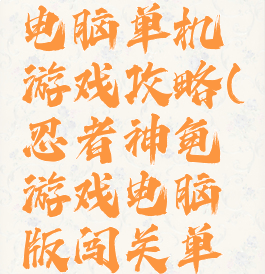 电脑单机
游戏攻略(
忍者神龟
游戏电脑
版闯关单